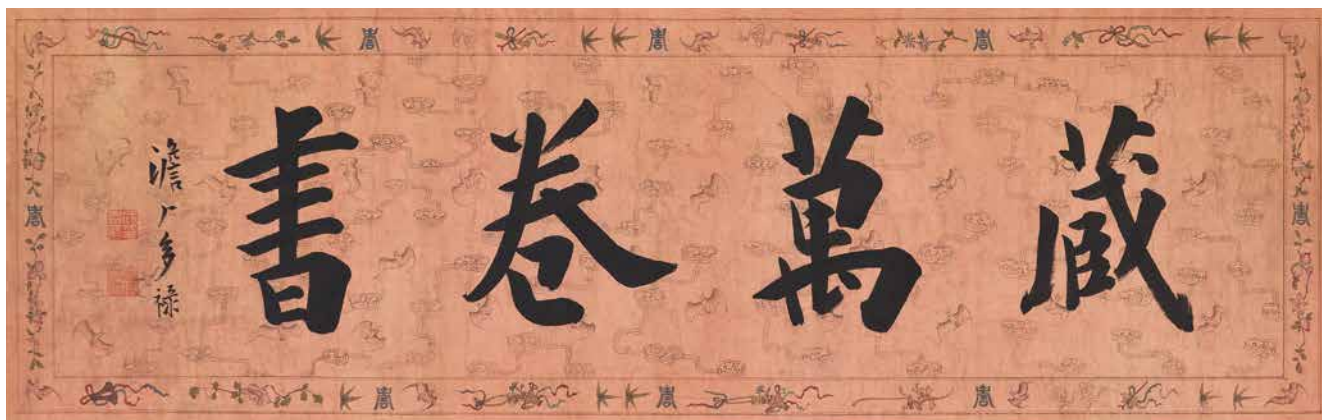 藏萬卷書
澹厂多祿